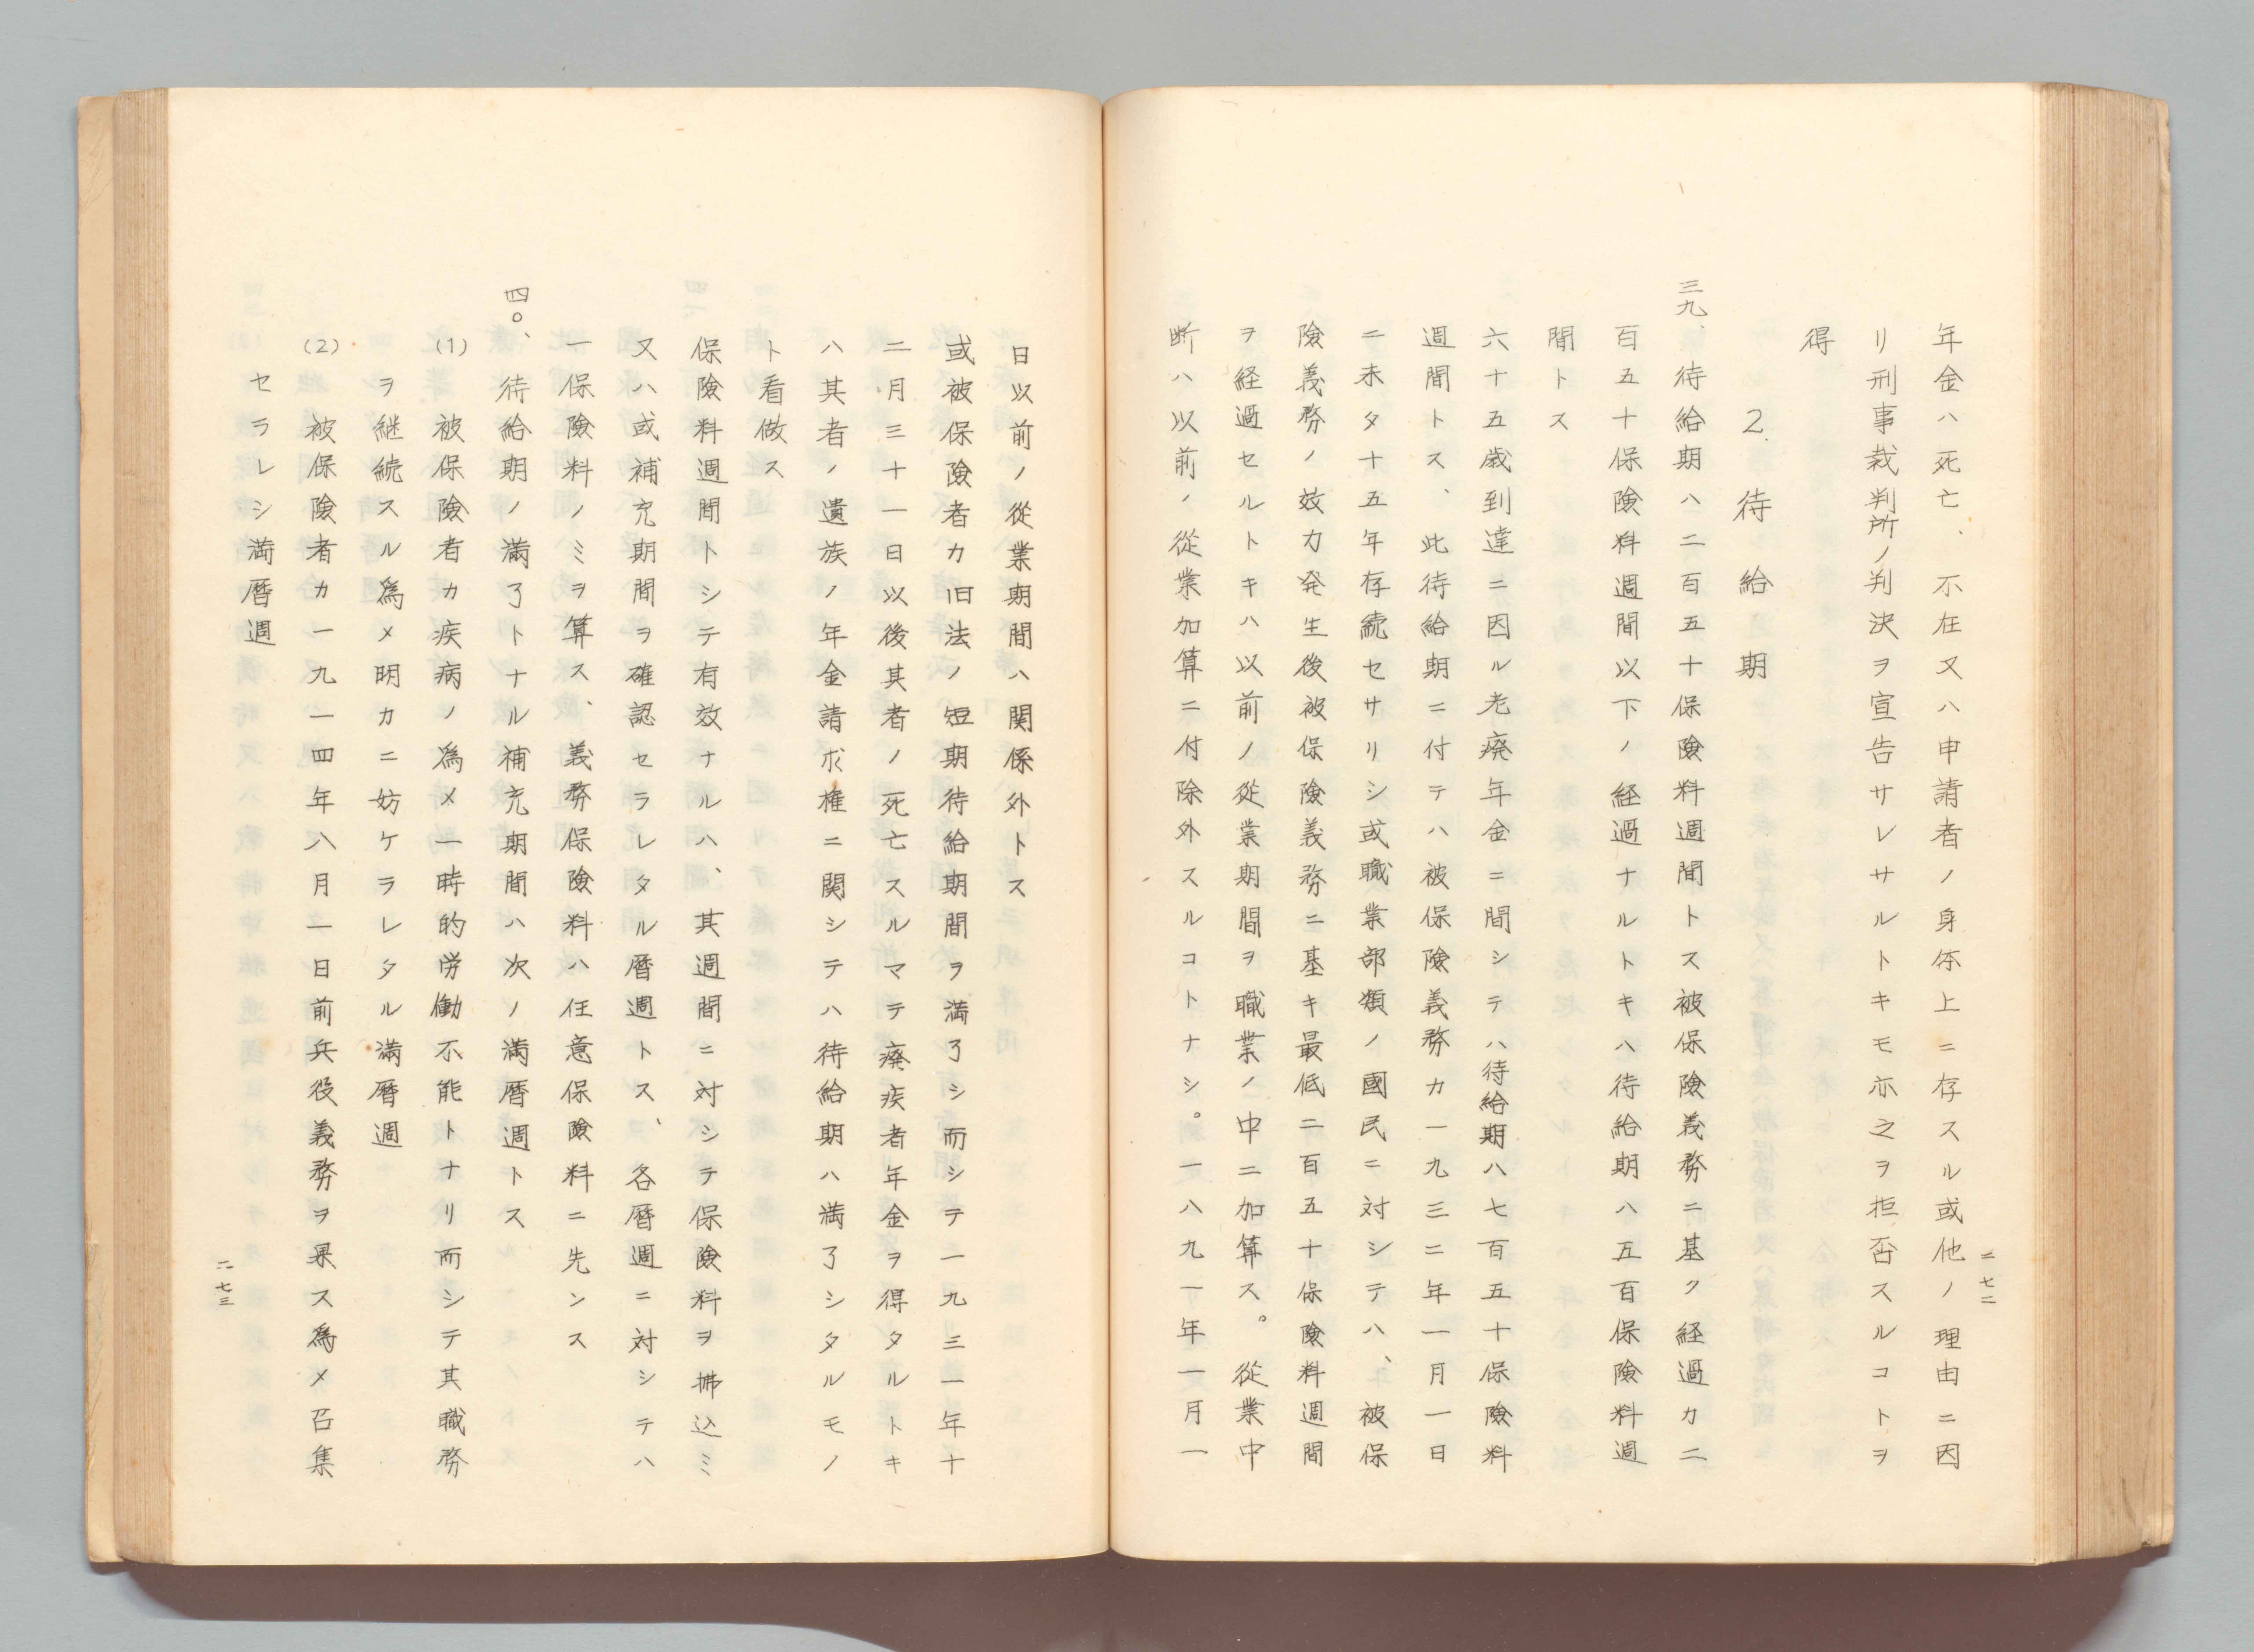 二七二
年金ハ死亡、不在又ハ申請者ノ身体上ニ存スル或他ノ理由ニ因
リ刑事裁判所ノ判決ヲ宣告サレサルトキモ亦之ヲ拒否スルコトヲ
得
2. 待給期
三九、待給期ハ二百五十保険料週間トス被保険義務ニ基ク経過カ二
百五十保険料週間以下ノ経過ナルトキハ待給期ハ五百保険料週
間トス
六十五歳到達ニ因ル老廃年金ニ間シテハ待給期ハ七百五十保険料
週間トス、此待給期ニ付テハ被保険義務カ一九三二年一月一日
ニ未タ十五年存続セサリシ或職業部類ノ國民ニ対シテハ、被保
険義務ノ效力発生後被保険義務ニ基キ最低二百五十保険料週間
ヲ経過セルトキハ以前ノ従業期間ヲ職業ノ中ニ加算ス。従業中
断ハ以前ノ從業加算ニ付除外スルコトナシ。一八九一年一月一
日以前ノ従業期間ハ関係外トス
或被保険者カ旧法ノ短期待給期間ヲ満了シ而シテ一九三一年十
二月三十一日以後其者ノ死亡スルマテ廃疾者年金ヲ得タルトキ
ハ其者ノ遺族ノ年金請求権ニ関シテハ待給期ハ満了シタルモノ
ト看做ス
保険料週間トシテ有效ナルハ、其週間ニ対シテ保険料ヲ拂込ミ
又ハ或補充期間ヲ確認セラレタル暦週トス、各暦週ニ対シテハ
一保険料ノミヲ算ス、義務保険料ハ任意保険料ニ先ンス
四〇、待給期ノ満了トナル補充期間ハ次ノ満暦週トス
(1) 被保険者カ疾病ノ為メ一時的労働不能トナリ而シテ其職務
ヲ継続スル為メ明カニ妨ケラレタル満暦週
(2) 被保険者カ一九一四年八月一日前兵役義務ヲ果ス為メ召集
セラレシ満暦週
二七三